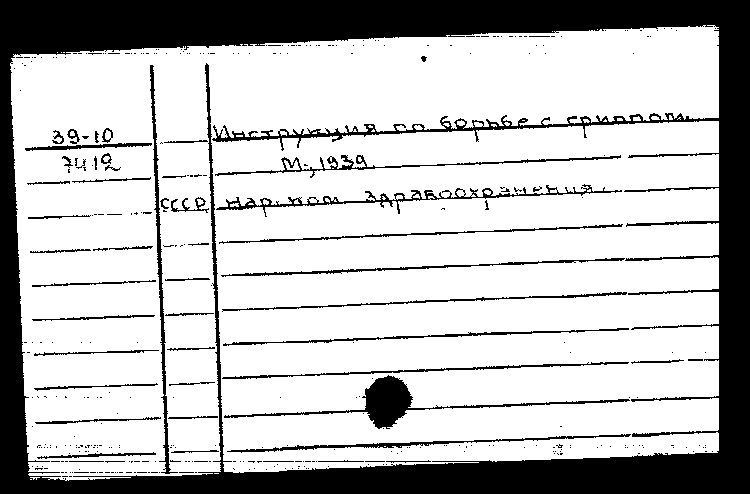 39-10 Инструкция по борьбе с гриппом.
7412 М., 1939
СССР Нар. ком. здравоохранения.